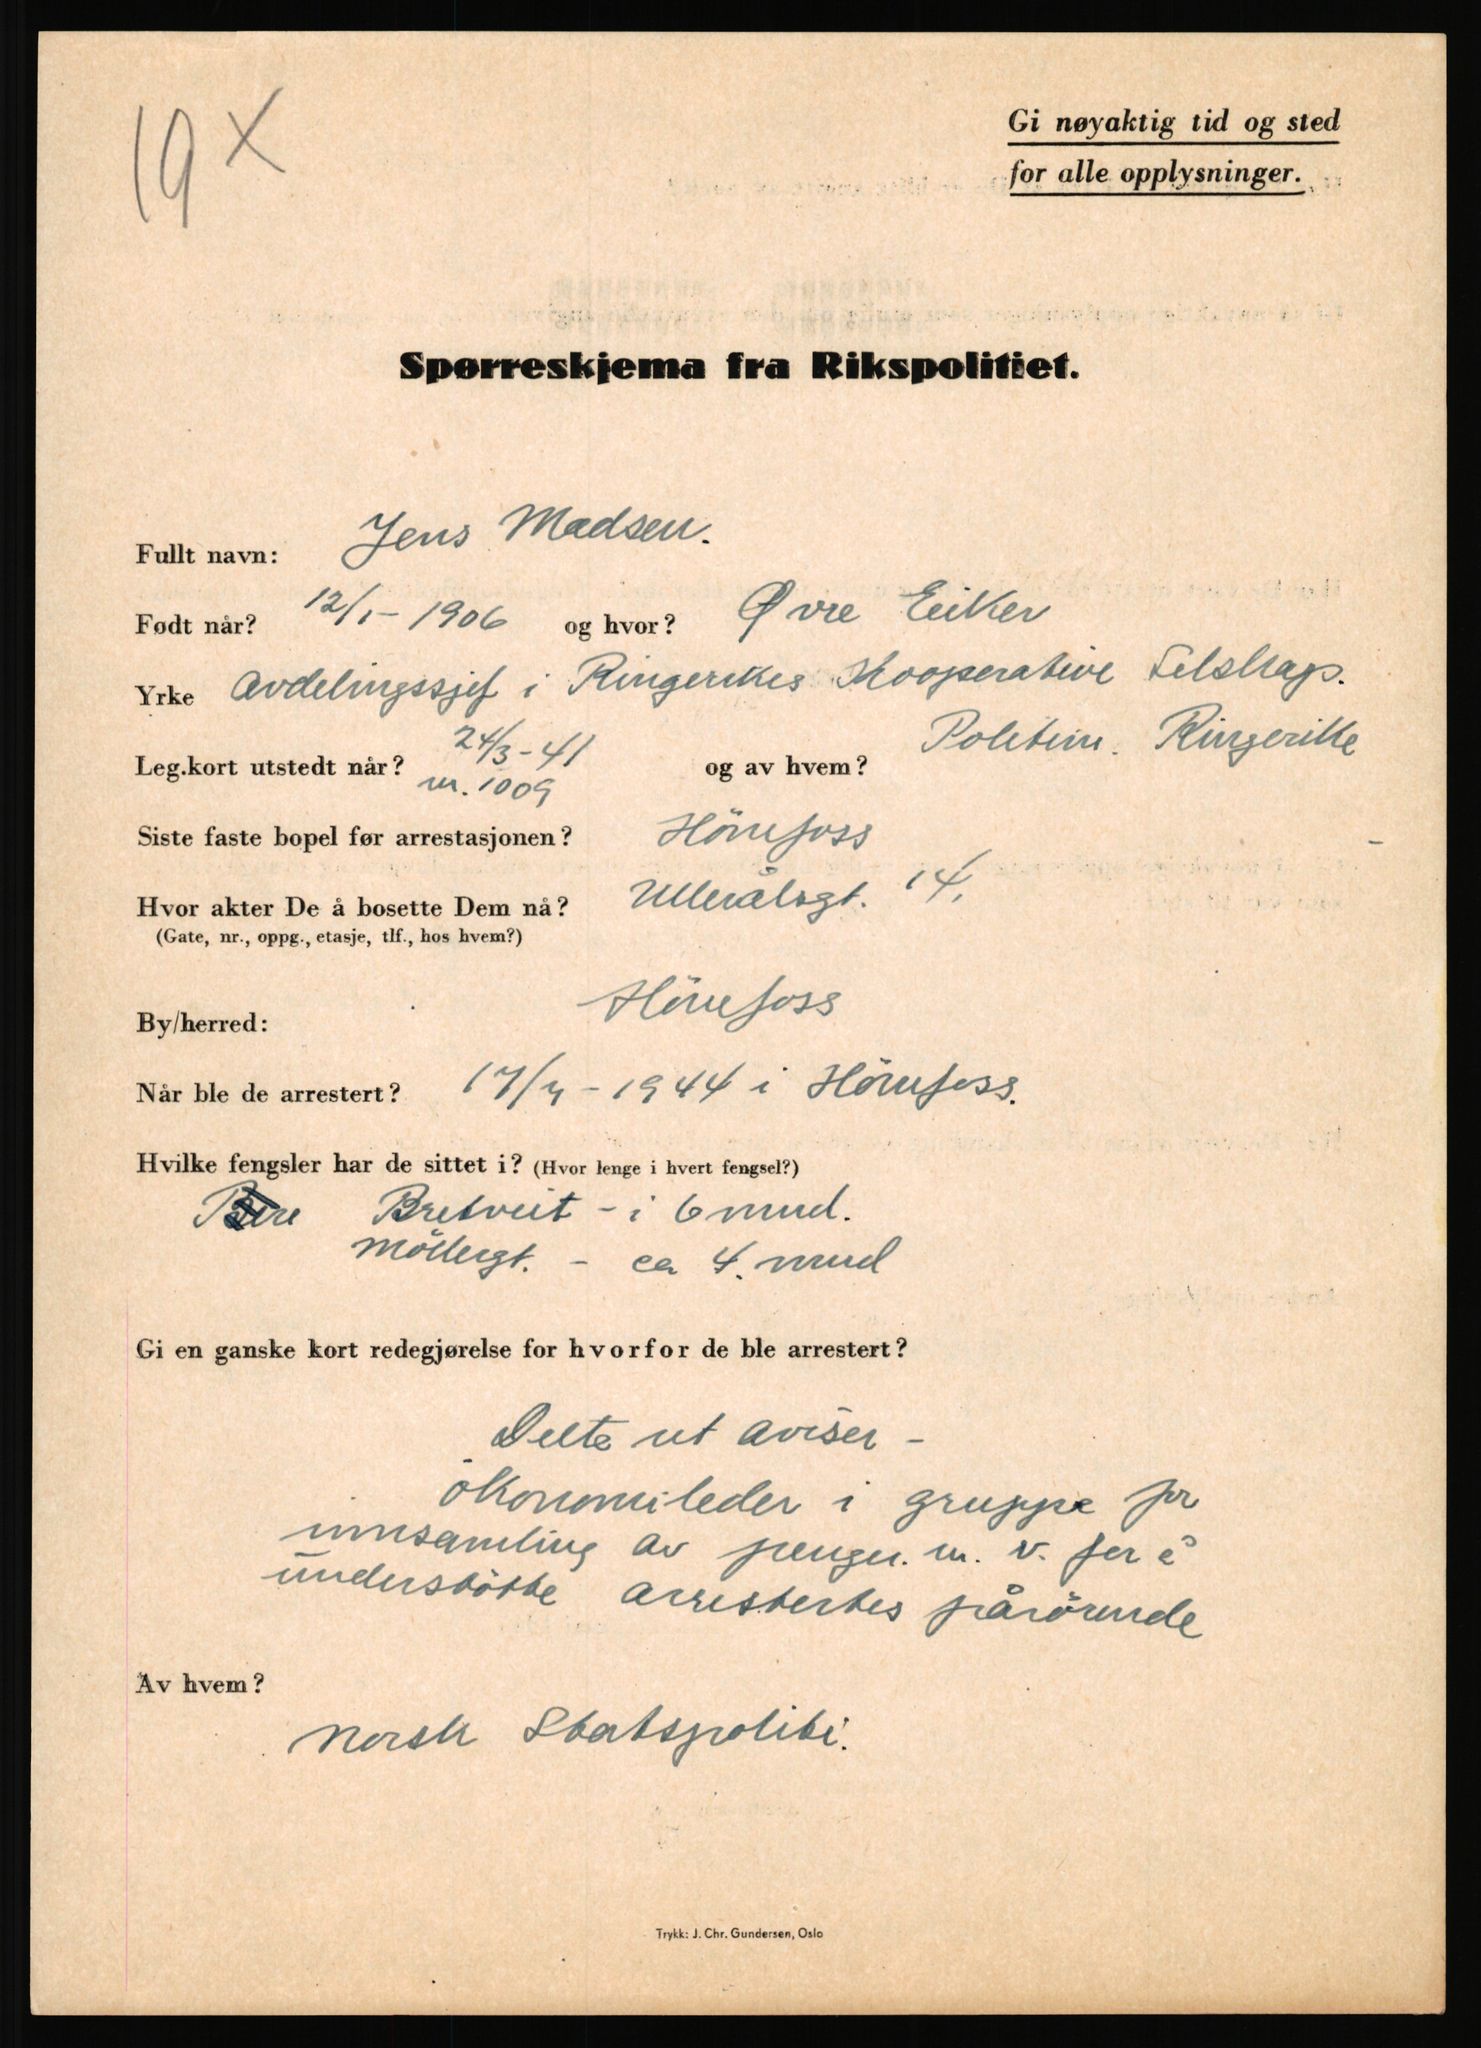 19 X
Gi nøyaktig tid og sted
for alle opplysninger.
Spørreskjema fra Rikspolitiet.
Fullt navn: Jens Madsen.
Født når? 12/1-1906 og hvor? Øvre Eiker
Yrke Avdelingssjef i Ringerikes Kooperative Selskap.
Leg.kort utstedt når? 24/3-41 og av hvem? Politim. Ringerike
nr. 1009
Siste faste bopel før arrestasjonen? Hönefoss
Hvor akter De å bosette Dem nå? Ullerålsgt. 14.
(Gate, nr., oppg., etasje, tlf., hos hvem?)
By/herred: Hönefoss
Når ble de arrestert? 17/7-1944 i Hönefoss.
Hvilke fengsler har de sittet i? (Hvor lenge i hvert fengsel?)
Bretveit - i 6 mnd.
Möllergt. - ca 4. mnd
Gi en ganske kort redegjørelse for hvorfor de ble arrestert?
Delte ut aviser -
ökonomileder i gruppe for
innsamling av penger. m. v. for å
understötte arrestertes pårörende
Av hvem?
Norsk Statspoliti.
Trykk: J. Chr. Gundersen, Oslo